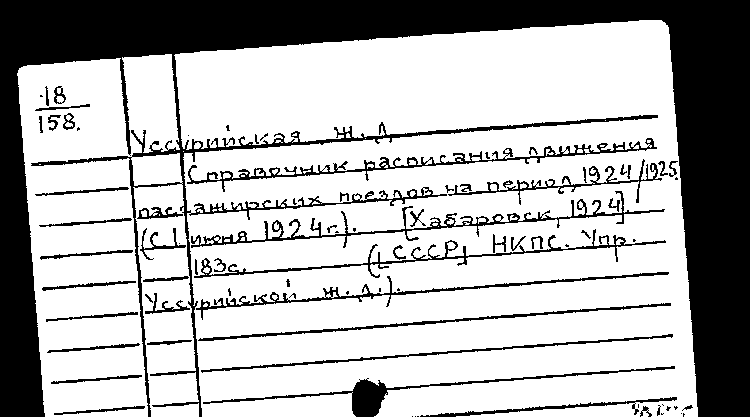 18
158.
Уссурийская ж. д.
Справочник расписания движения
пассажирских поездов на период 1924/1925
(с 1 июня 1924 г.). [Хабаровск, 1924].
183 с. ([СССР] НКПС. Упр.
Уссурийской ж. д.).